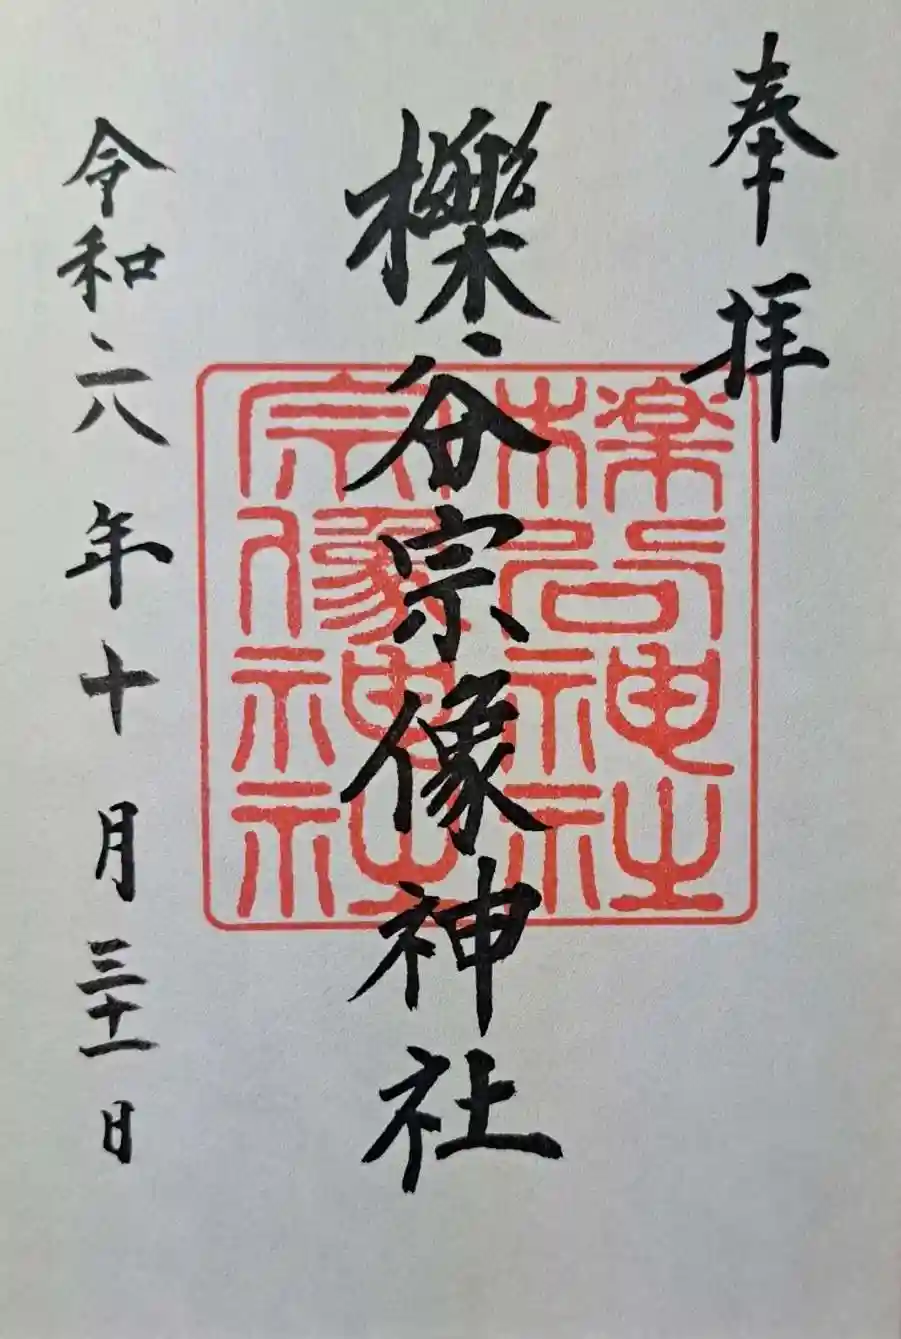 奉拝
櫟谷宗像神社
令和六年十月三十一日
櫟谷神社
宗像神社